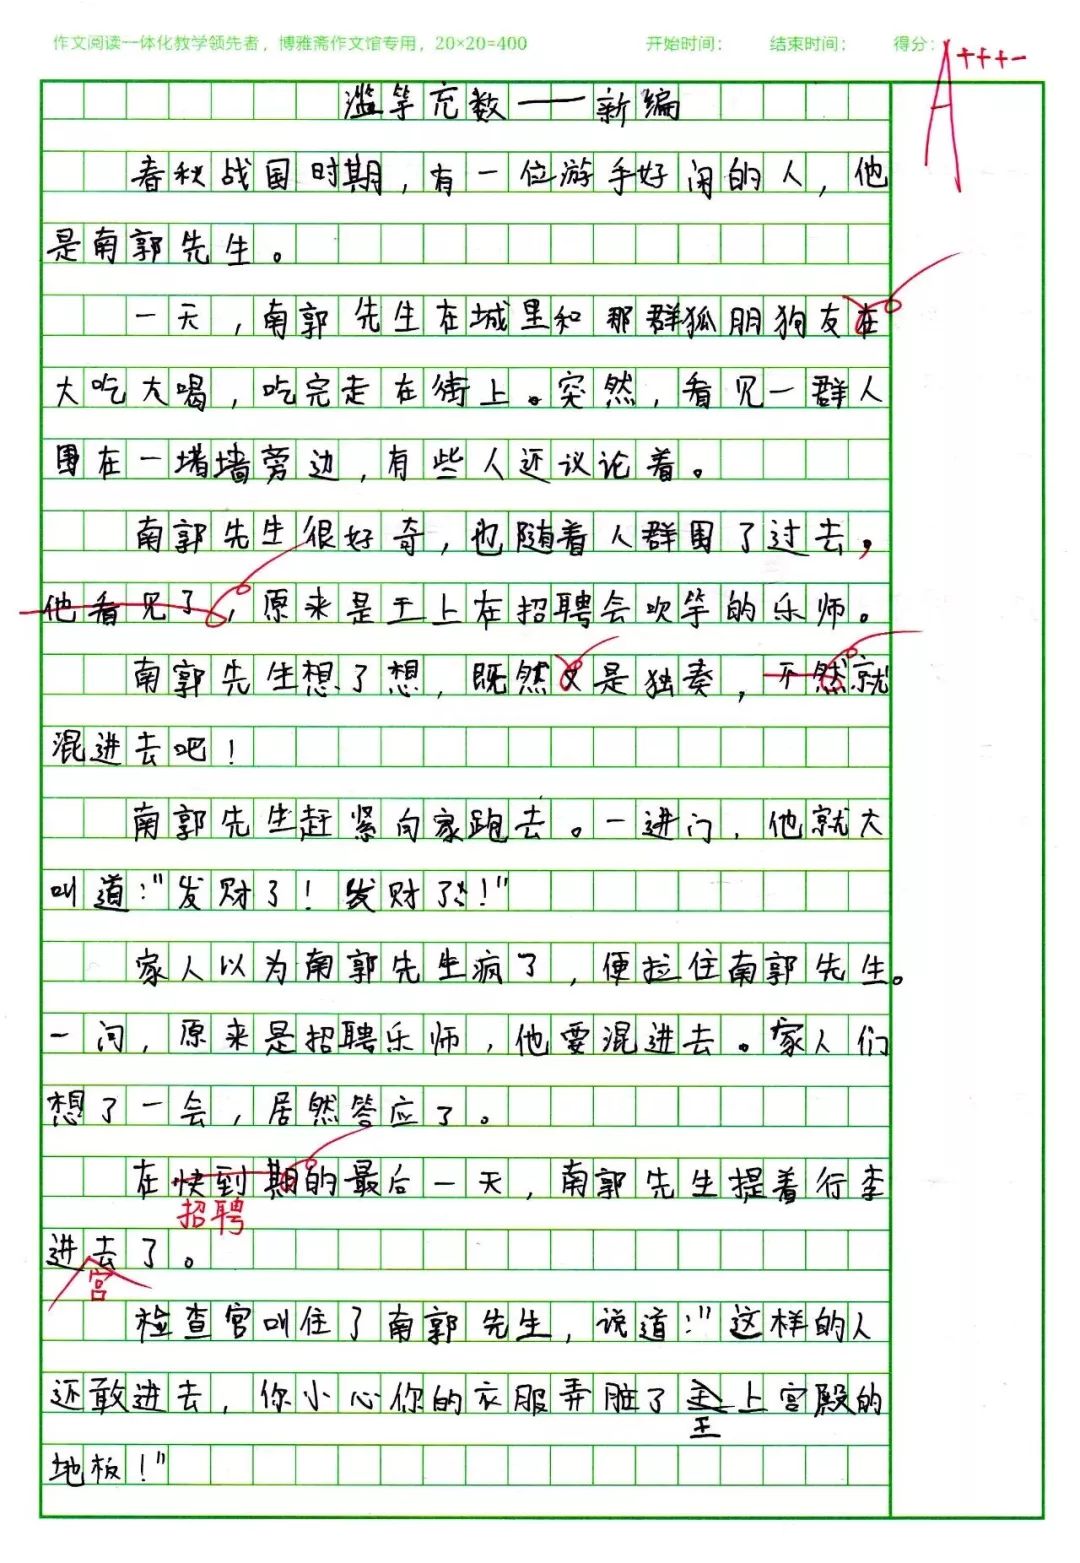 作文阅读一体化教学领先者，博雅斋作文馆专用，20×20=400 开始时间： 结束时间： 得分：
A+++-
滥竽充数——新编
春秋战国时期，有一位游手好闲的人，他
是南郭先生。
一天，南郭先生在城里和那群狐朋狗友在
大吃大喝，吃完走在街上。突然，看见一群人
围在一堵墙旁边，有些人还议论着。
南郭先生很好奇，也随着人群围了过去，
他看见了，原来是王上在招聘会吹竽的乐师。
南郭先生想了想，既然又是独奏，不然就
混进去吧！
南郭先生赶紧向家跑去。一进门，他就大
叫道："发财了！发财了！"
家人以为南郭先生病了，便拉住南郭先生。
一问，原来是招聘乐师，他要混进去。家人们
想了一会，居然答应了。
在快到期的最后一天，南郭先生提着行李
招聘
进去了。
宫
检查官叫住了南郭先生，说道："这样的人
还敢进去，你小心你的衣服弄脏了主上宫殿的
王
地板！"